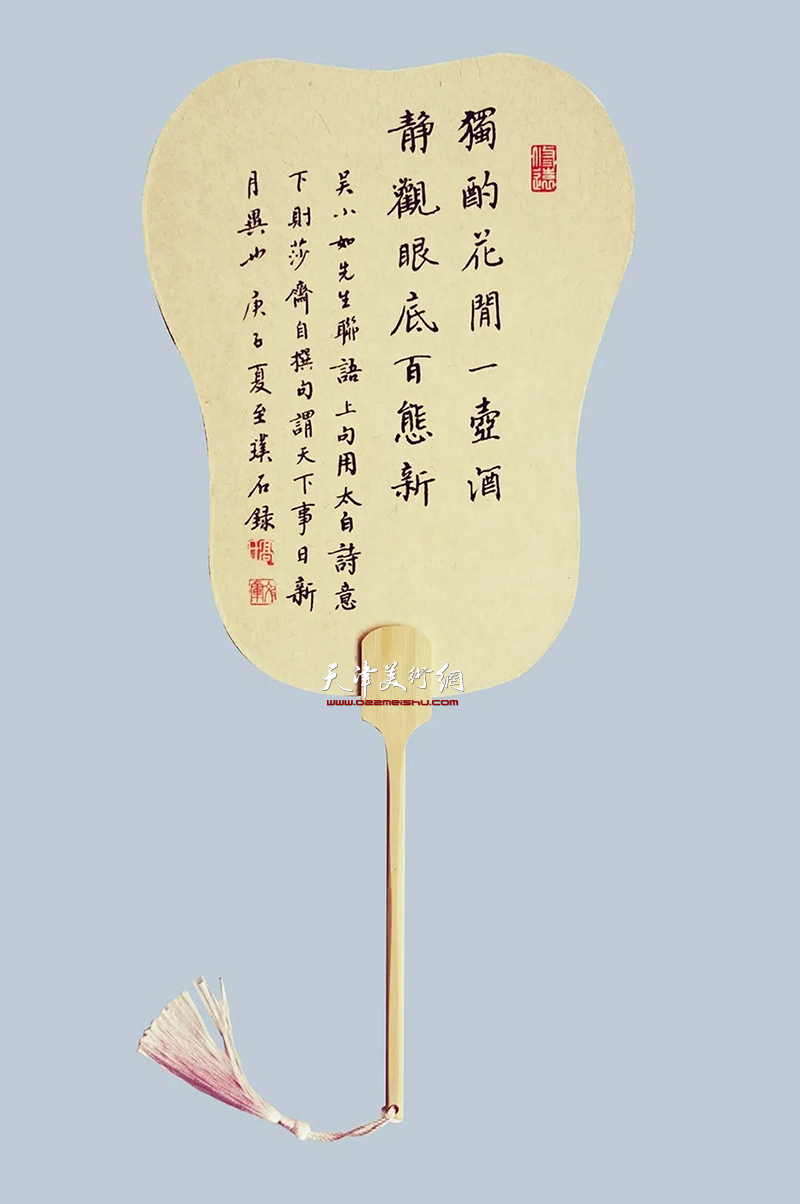 獨酌花間一壺酒
静觀眼底百態新
吴小如先生聯語上句用太白詩意
下則莎齋自撰句謂天下事日新
月異也庚子夏至璞石録
天津美術網
www.022meishu.com